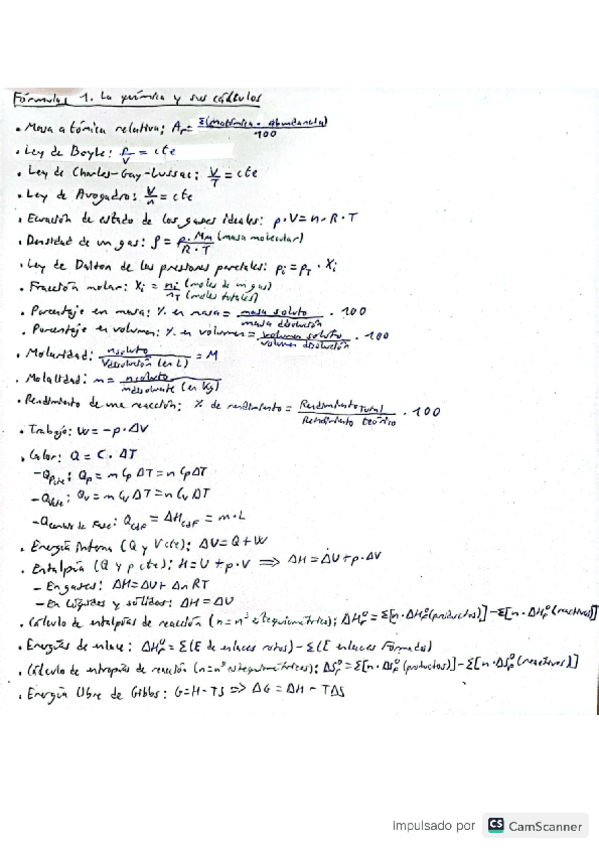 Fórmulas 1. La química y sus cálculos
• Masa atómica relativa: Ar = Σ(m atómica · abundancia) / 100
• Ley de Boyle: P/V = cte
• Ley de Charles-Gay-Lussac: V/T = cte
• Ley de Avogadro: V/n = cte
• Ecuación de estado de los gases ideales: p·V = n·R·T
• Densidad de un gas: ρ = p·Mm (masa molecular) / R·T
• Ley de Dalton de las presiones parciales: pi = pT · Xi
• Fracción molar: Xi = ni (moles de un gas) / nT (moles totales)
• Porcentaje en masa: % en masa = masa soluto / masa disolución · 100
• Porcentaje en volumen: % en volumen = volumen soluto / volumen disolución · 100
• Molaridad: nsoluto / Vdisolución (en L) = M
• Molalidad: m = nsoluto / mdisolvente (en Kg)
• Rendimiento de una reacción: % de rendimiento = Rendimiento total / Rendimiento teórico · 100
• Trabajo: W = -p·ΔV
• Calor: Q = C·ΔT
- Qp cte: Qp = m Cp ΔT = n Cp ΔT
- Qv cte: Qv = m Cv ΔT = n Cv ΔT
- Q cambio de fase: QcdF = ΔHcdF = m·L
• Energía interna (Q y V cte): ΔU = Q + W
• Entalpía (Q y p cte): H = U + p·V ⇒ ΔH = ΔU + p·ΔV
- En gases: ΔH = ΔU + Δn RT
- En líquidos y sólidos: ΔH = ΔU
• Cálculo de entalpías de reacción (n = nº estequiométricos): ΔHr⁰ = Σ[n·ΔHf⁰(productos)] - Σ[n·ΔHf⁰(reactivos)]
• Energías de enlace: ΔHr⁰ = Σ(E de enlaces rotos) - Σ(E enlaces formados)
• Cálculo de entropías de reacción (n = nº estequiométricos): ΔSr⁰ = Σ[n·ΔSf⁰(productos)] - Σ[n·ΔSf⁰(reactivos)]
• Energía libre de Gibbs: G = H - TS ⇒ ΔG = ΔH - TΔS
Impulsado por CS CamScanner